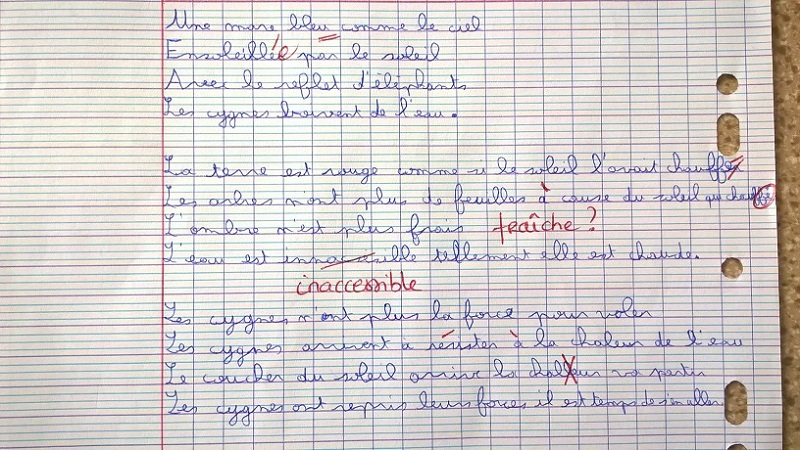 Une mare bleu comme le ciel
Ensoleillée par le soleil
Avec le reflet d'éléphants
Les cygnes boivent de l'eau.
La terre est rouge comme si le soleil l'avait chauffer
Les arbres n'ont plus de feuilles à cause du soleil qui chauffe
L'ombre n'est plus frais fraîche ?
L'eau est tellement elle est chaude.
inaccessible
Les cygnes n'ont plus la force pour voler
Les cygnes arrivent a résister à la chaleur de l'eau
Le coucher du soleil arrive la va partir
Les cygnes ont repris leurs forces il est temps de s'en aller